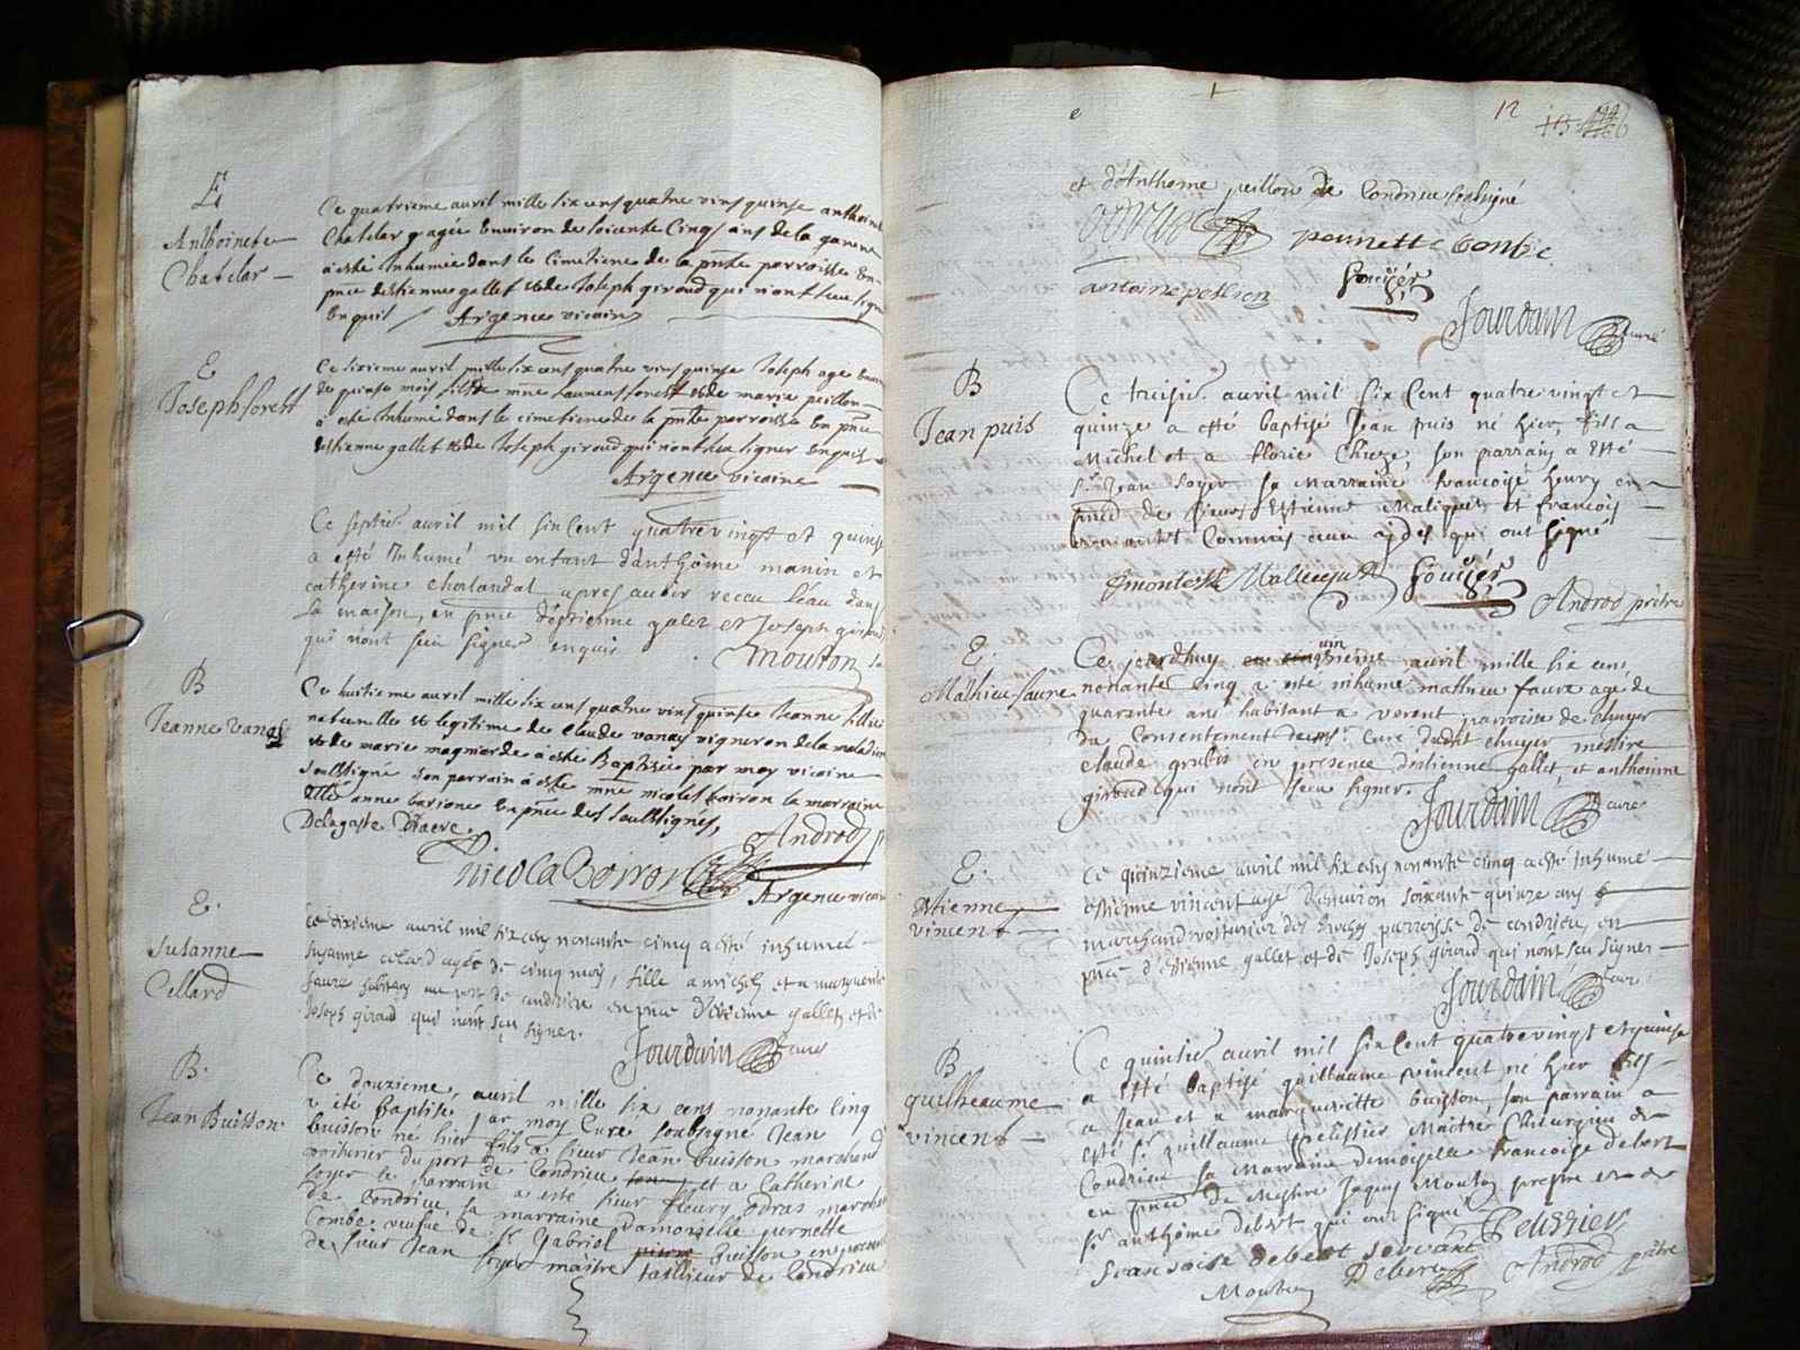 E
Anthoinete
Chatelar
Ce quatrieme avril mille six cens quatre vins quinse anthoinete
Chatelar agée environ de soicente Cinq ans de la garenne
à esté Inhumée dans le Cimetiere de la pnte parroisse En
pnce destienne gallet & de Joseph giroud qui n'ont sceu signer
Enquis Argence vicaire
E
Joseph forest
Ce sixieme avril mille six cens quatre vins quinse Joseph age
de quinse mois fils de mre Laurens forest & de marie peillon
à esté Inhumé dans le cimetiere de la pnte parroisse En pnce
destienne gallet & de Joseph giroud qui n'ont sceu signer Enquis
Argence vicaire
Ce septie avril mil six Cent quatre vingt et quinse
a esté Inhumé un enfant d'anthôime manin et
catherine chalandal apres avoir receu l'eau dans
la maison, en pnce d'estienne galet et Joseph giroud
qui nont sceu signer enquis
Mouton
B
Jeanne Vanay
Ce huitieme avril mille six cens quatre vins quinse Jeanne fille
naturelle & legitime de Claude vanay vigneron de la maladiere
& de marie magniarde à esté Baptisée par moy vicaire
soubsigné son parrain à esté mre nicolas boiron la marraine
anne barione En pnce des soubsignes,
Delagaste Diacre. Androd p
Nicola Boiron
Argence vicaire
E.
Susanne
Cellard
Ce dixieme avril mil six cens nonante cinq a esté inhumée
susanne celard agée de cinq mois, fille a michel et a marguerite
faure habitans au port de condrieu en pnce d'estienne gallet et de
Joseph giroud qui nont sçeu signer.
Jourdain curé
B.
Jean Buisson
Ce douzieme, avril mille six cens nonante cinq
a eté baptisé par moy Curé soubsigné Jean
buisson né hier fils a sieur Jean buisson marchand
voiturier du port de Condrieu et a Catherine
soyer le parrain a esté sieur fleury odras marchand
de Condrieu, sa marraine Damoiselle pernette
Combe veufue de Sr Gabriel buisson en presence
de sieur Jean soyer maitre tallieur de Condrieu
12
et d'Anthoine peillon de Condrieu soubsigné
pernette combe
antoine pellion
Jourdain curé
B
Jean puis
Ce treisie avril mil six Cent quatre vingt et
quinze a esté baptisé Jean puis né hier, fils a
Michel et a florie Chieze, son parrain a esté
sr Jean soyer sa Marraine francoise henry en
pnce de sieurs Estienne Maliquet et francois
Commis aux aydes qui ont signé
Androd prètre
E.
Mathieu faure
Ce jourdhuy avril mille six cens
nonante cinq a esté inhumé mathieu faure agé de
quarante ans habitant a verent parroisse de chuyer
du Consentement du Curé dudit chuyer messire
claude grubis en presence destienne gallet, et anthoinne
giroud qui n'ont sceu signer.
Jourdain curé
E.
Estienne
vincent
Ce quinzieme avril mil six cens nonante cinq a esté inhumé
estienne vincent agé d'environ soixante quinze ans
marchand voiturier des Roches parroisse de condrieu, en
pnce d'estienne gallet et de Joseph giroud qui nont sceu signer
Jourdain curé
B
guilheaume
vincent
Ce quinsie avril mil six Cent quatre vingt et quinse
a esté baptisé guillaume vincent né hier fils
a Jean et a marguerite buisson, son parrain a
esté sr guillaume pelissier Maitre Chirurgien de
Condrieu sa Marraine demoiselle francoise debert
en pnce de Messire Jaques Mouton prestre et de
sr anthôime debert qui ont signé
Pelissier
francoise debert servant
Debert
Androd prètre
Mouton